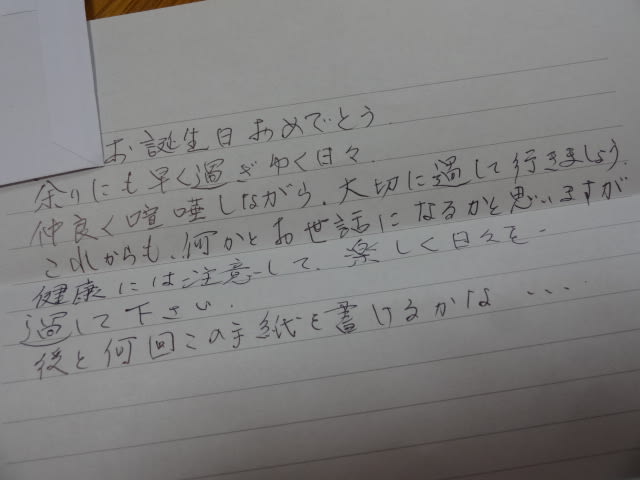 お誕生日おめでとう.
余りにも早く過ぎゆく日々.
仲良く喧嘩しながら、大切に過して行きましょう.
これからも、何かとお世話になるかと思いますが
健康には注意して、楽しく日々を
過して下さい.
後と何回この手紙を書けるかな....